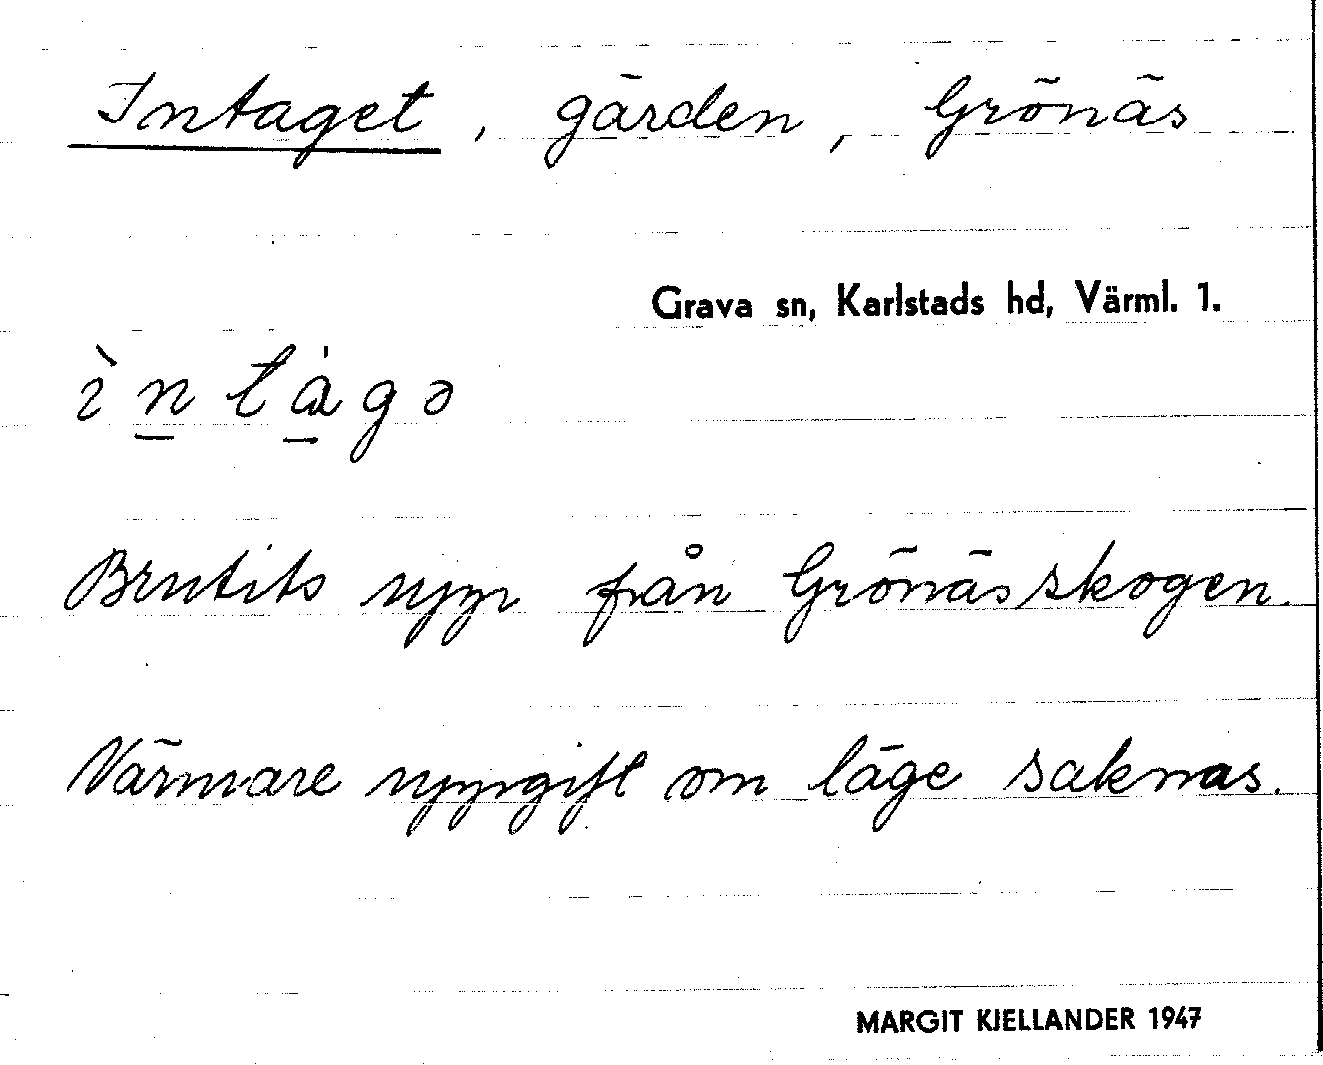 Intaget, gärden, Grönäs
Grava sn, Karlstads hd, Värml. 1.
ìntàgə
Brutits upp från Grönässkogen.
Närmare uppgift om läge saknas.
MARGIT KJELLANDER 1947